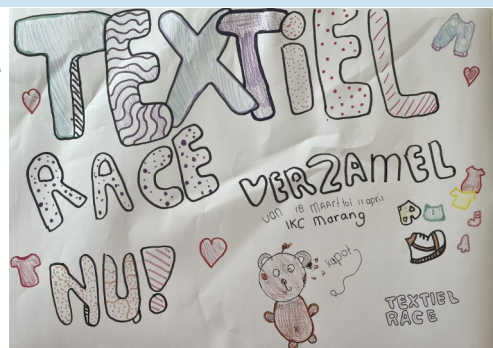 TEXTiEL
RACE
VERZAMEL
van 18 MAART tot 11 april
IKC Marang
NU!
kapot
TEXTIEL
RACE